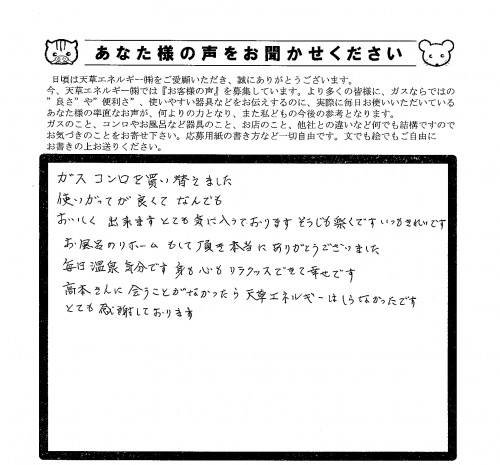 あなた様の声をお聞かせください
日頃は天草エネルギー㈱をご愛顧いただき、誠にありがとうございます。
今、天草エネルギー㈱では『お客様の声』を募集しています。より多くの皆様に、ガスならではの
”良さ”や”便利さ”、使いやすい器具などをお伝えするのに、実際に毎日お使いいただいている
あなた様の率直なお声が、何よりの力となり、また私どもの今後の参考となります。
ガスのこと、コンロやお風呂など器具のこと、お店のこと、他社との違いなど何でも結構ですので
お気づきのことをお寄せ下さい。応募用紙の書き方など一切自由です。文でも絵でもご自由に
お書きの上お送りください。
ガス コンロを買い替えました
使いがってが良くて なんでも
おいしく 出来ますとても気に入っております そうじも楽くです いつもきれいです
お風呂のリホーム もして頂き本当に ありがとうございました
毎日温泉気分です 身も心も リラックスできて幸せです
高本さんに 会うことがなかったら 天草エネルギーはしらなかったです
とても感謝しております